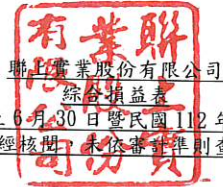 聯上實業股份有限公司
綜合損益表
6月30日暨民國112年
經核閱,未依審計準則查